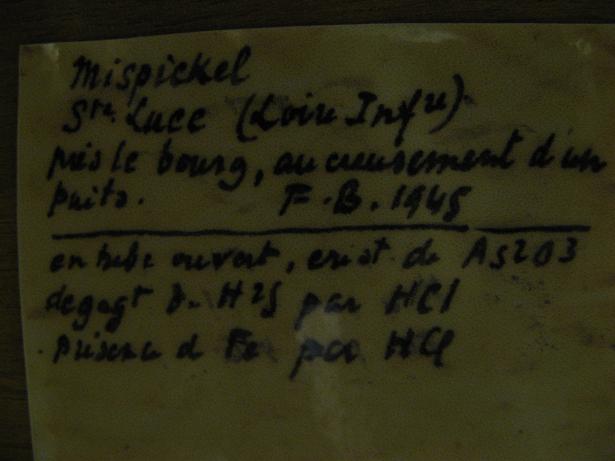 Mispickel
Ste Luce (Loire Infre)
près le bourg, au creusement d'un
puits. F.B. 1945
en tube ouvert, crist de As2O3
degagt de H2S par HCl
présence de Fe par HCl